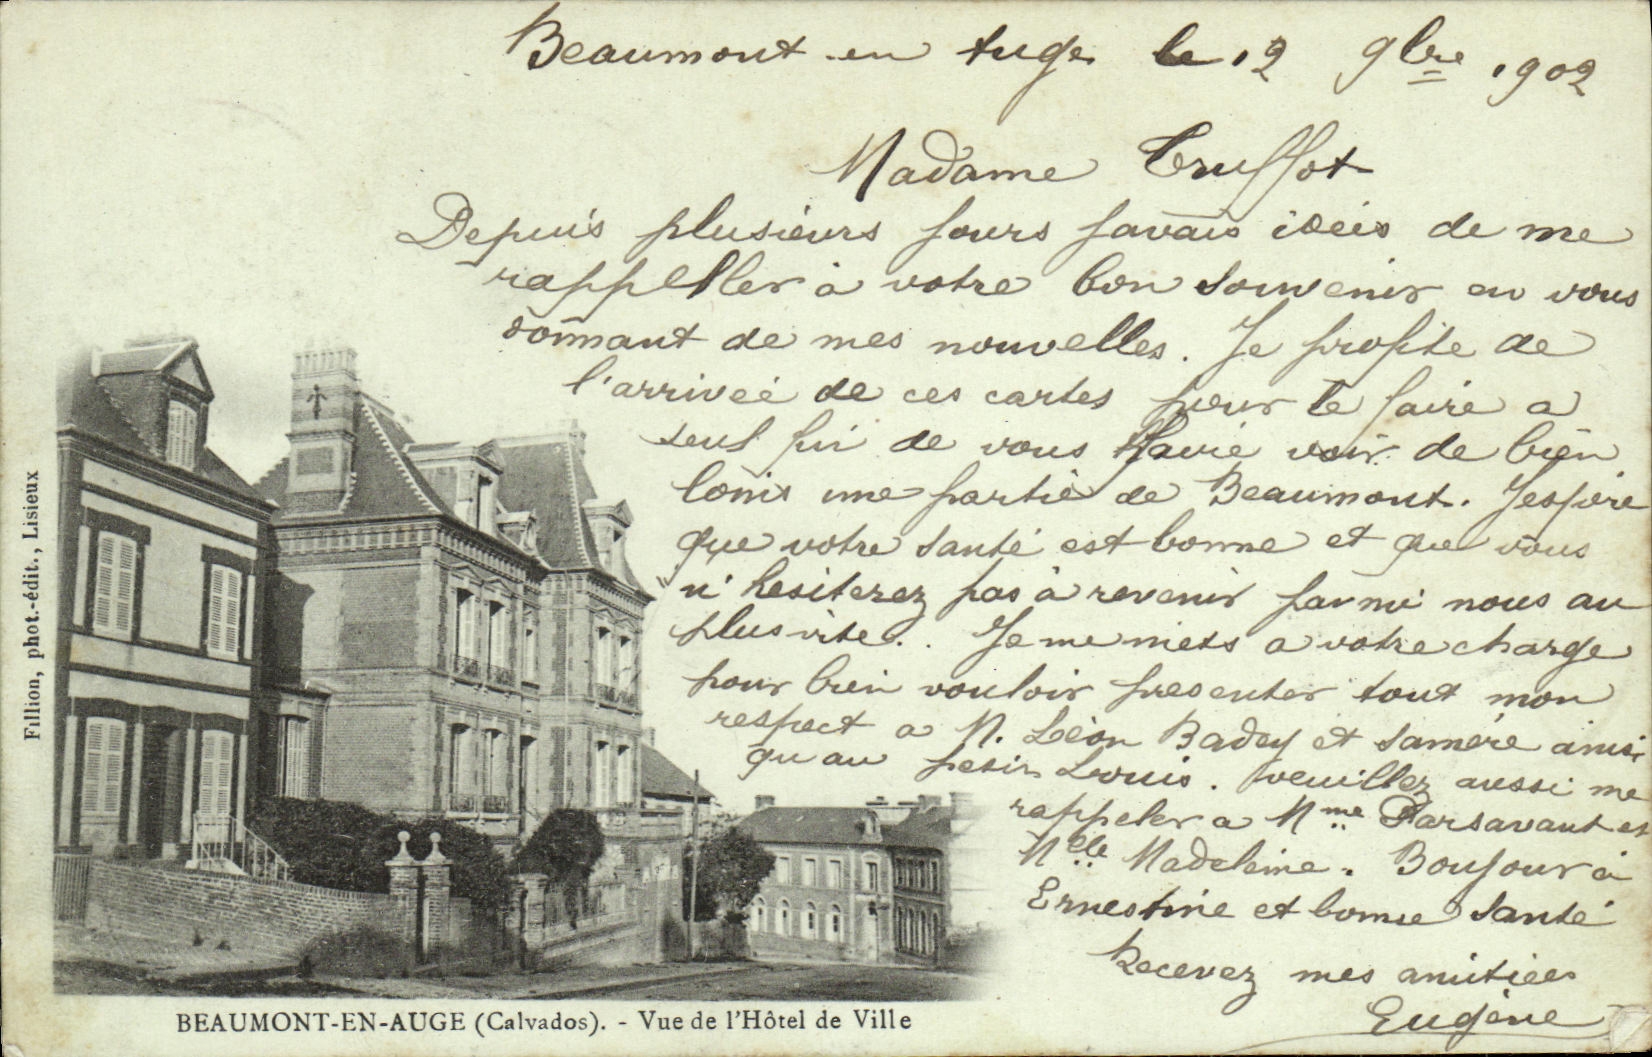 Beaumont en Auge le 12 9bre 1902
Madame Truffot
Depuis plusieurs jours j'avais ideés de me
rappeller à votre bon souvenir en vous
donnant de mes nouvelles. Je profite de
l'arriveé de ces cartes pour le faire a
seul fin de vous faire voir de bien
loins une partie de Beaumont. J'espère
que votre santé est bonne et que vous
n'hesiterez pas à revenir parmi nous au
plus vite. Je me mets a votre charge
pour bien vouloir presenter tout mon
respect a M. Léon Badey et sa mère ainsi
qu'au petit Louis. veuillez aussi me
rappeler a Mme Parsavant et
Melle Madeleine. Bonjour à
Ernestine et bonne santé
Recevez mes amitiées
Eugène
Fillion, phot.-édit., Lisieux
BEAUMONT-EN-AUGE (Calvados). - Vue de l'Hôtel de Ville